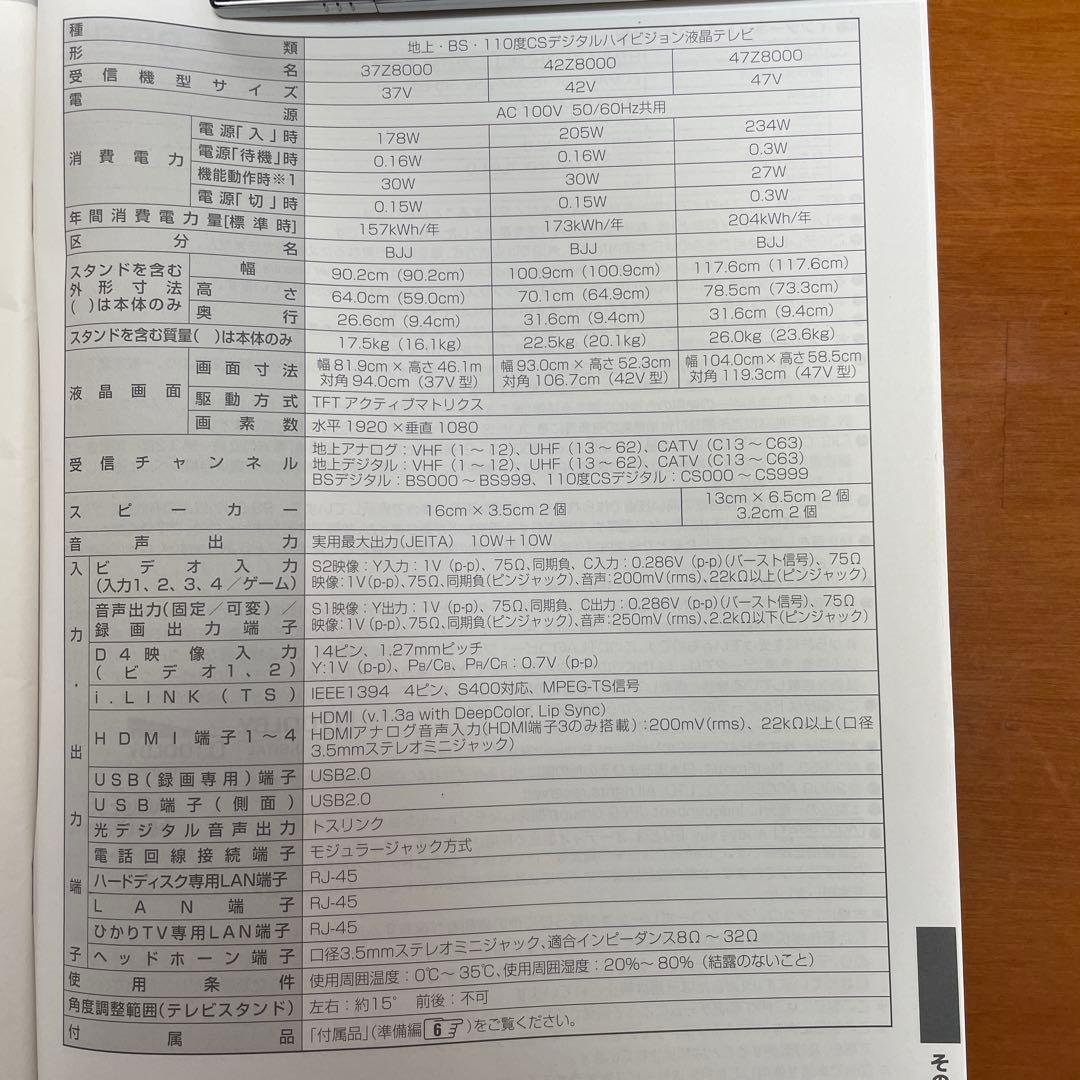 種類 地上・BS・110度CSデジタルハイビジョン液晶テレビ
形名 37Z8000 42Z8000 47Z8000
受信機型サイズ 37V 42V 47V
電源 AC 100V 50/60Hz共用
消費電力 電源「入」時 178W 205W 234W
電源「待機」時 0.16W 0.16W 0.3W
機能動作時※1 30W 30W 27W
電源「切」時 0.15W 0.15W 0.3W
年間消費電力量[標準時] 157kWh/年 173kWh/年 204kWh/年
区分名 BJJ BJJ BJJ
スタンドを含む
外形寸法
( )は本体のみ
幅 90.2cm（90.2cm） 100.9cm（100.9cm） 117.6cm（117.6cm）
高さ 64.0cm（59.0cm） 70.1cm（64.9cm） 78.5cm（73.3cm）
奥行 26.6cm（9.4cm） 31.6cm（9.4cm） 31.6cm（9.4cm）
スタンドを含む質量( )は本体のみ 17.5kg（16.1kg） 22.5kg（20.1kg） 26.0kg（23.6kg）
液晶画面 画面寸法 幅81.9cm×高さ46.1m 幅93.0cm×高さ52.3cm 幅104.0cm×高さ58.5cm
対角94.0cm（37V型） 対角106.7cm（42V型） 対角119.3cm（47V型）
駆動方式 TFTアクティブマトリクス
画素数 水平1920×垂直1080
受信チャンネル
地上アナログ：VHF（1～12）、UHF（13～62）、CATV（C13～C63）
地上デジタル：VHF（1～12）、UHF（13～62）、CATV（C13～C63）
BSデジタル：BS000～BS999、110度CSデジタル：CS000～CS999
スピーカー 16cm×3.5cm 2個 13cm×6.5cm 2個
3.2cm 2個
音声出力 実用最大出力(JEITA) 10W＋10W
入力・出力端子
ビデオ入力
(入力1、2、3、4／ゲーム)
S2映像：Y入力：1V（p-p）、75Ω、同期負、C入力：0.286V（p-p）(バースト信号)、75Ω
映像：1V(p-p)、75Ω、同期負(ピンジャック)、音声：200mV(rms)、22kΩ以上(ピンジャック)
音声出力(固定／可変)／
録画出力端子
S1映像：Y出力：1V（p-p）、75Ω、同期負、C出力：0.286V（p-p）(バースト信号)、75Ω
映像：1V(p-p)、75Ω、同期負(ピンジャック)、音声：250mV(rms)、2.2kΩ以下(ピンジャック)
D4映像入力
(ビデオ1、2)
14ピン、1.27mmピッチ
Y:1V（p-p）、PB/CB、PR/CR：0.7V（p-p）
i.LINK(TS) IEEE1394 4ピン、S400対応、MPEG-TS信号
HDMI端子1～4
HDMI（v.1.3a with DeepColor, Lip Sync）
HDMIアナログ音声入力(HDMI端子3のみ搭載)：200mV(rms)、22kΩ以上(口径
3.5mmステレオミニジャック)
USB(録画専用)端子 USB2.0
USB端子(側面) USB2.0
光デジタル音声出力 トスリンク
電話回線接続端子 モジュラージャック方式
ハードディスク専用LAN端子 RJ-45
LAN端子 RJ-45
ひかりTV専用LAN端子 RJ-45
ヘッドホーン端子 口径3.5mmステレオミニジャック、適合インピーダンス8Ω～32Ω
使用条件 使用周囲温度：0℃～35℃、使用周囲湿度：20%～80%（結露のないこと）
角度調整範囲(テレビスタンド) 左右：約15° 前後：不可
付属品 「付属品」(準備編 6 )をご覧ください。
その